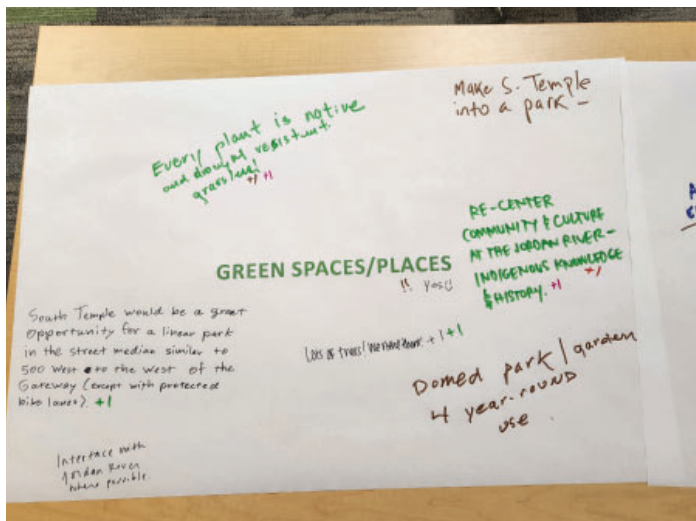 Make S. Temple
into a park -
Every plant is native
and drought resistent
grass/less!
+1 +1
RE-CENTER
COMMUNITY & CULTURE
AT THE JORDAN RIVER-
INDIGENOUS KNOWLEDGE
& HISTORY. +1 +1
GREEN SPACES/PLACES
!! Yes!!
South Temple would be a great
opportunity for a linear park
in the street median similar to
500 West to the west of the
Gateway (except with protected
bike lanes). +1
Lots of trees! We need them. +1 +1
Domed park / garden
4 year-round
use.
Interface with
Jordan River
where possible.